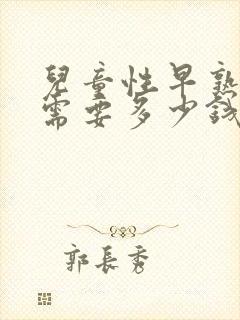 兒童性早熟
需要多少錢
郭長秀